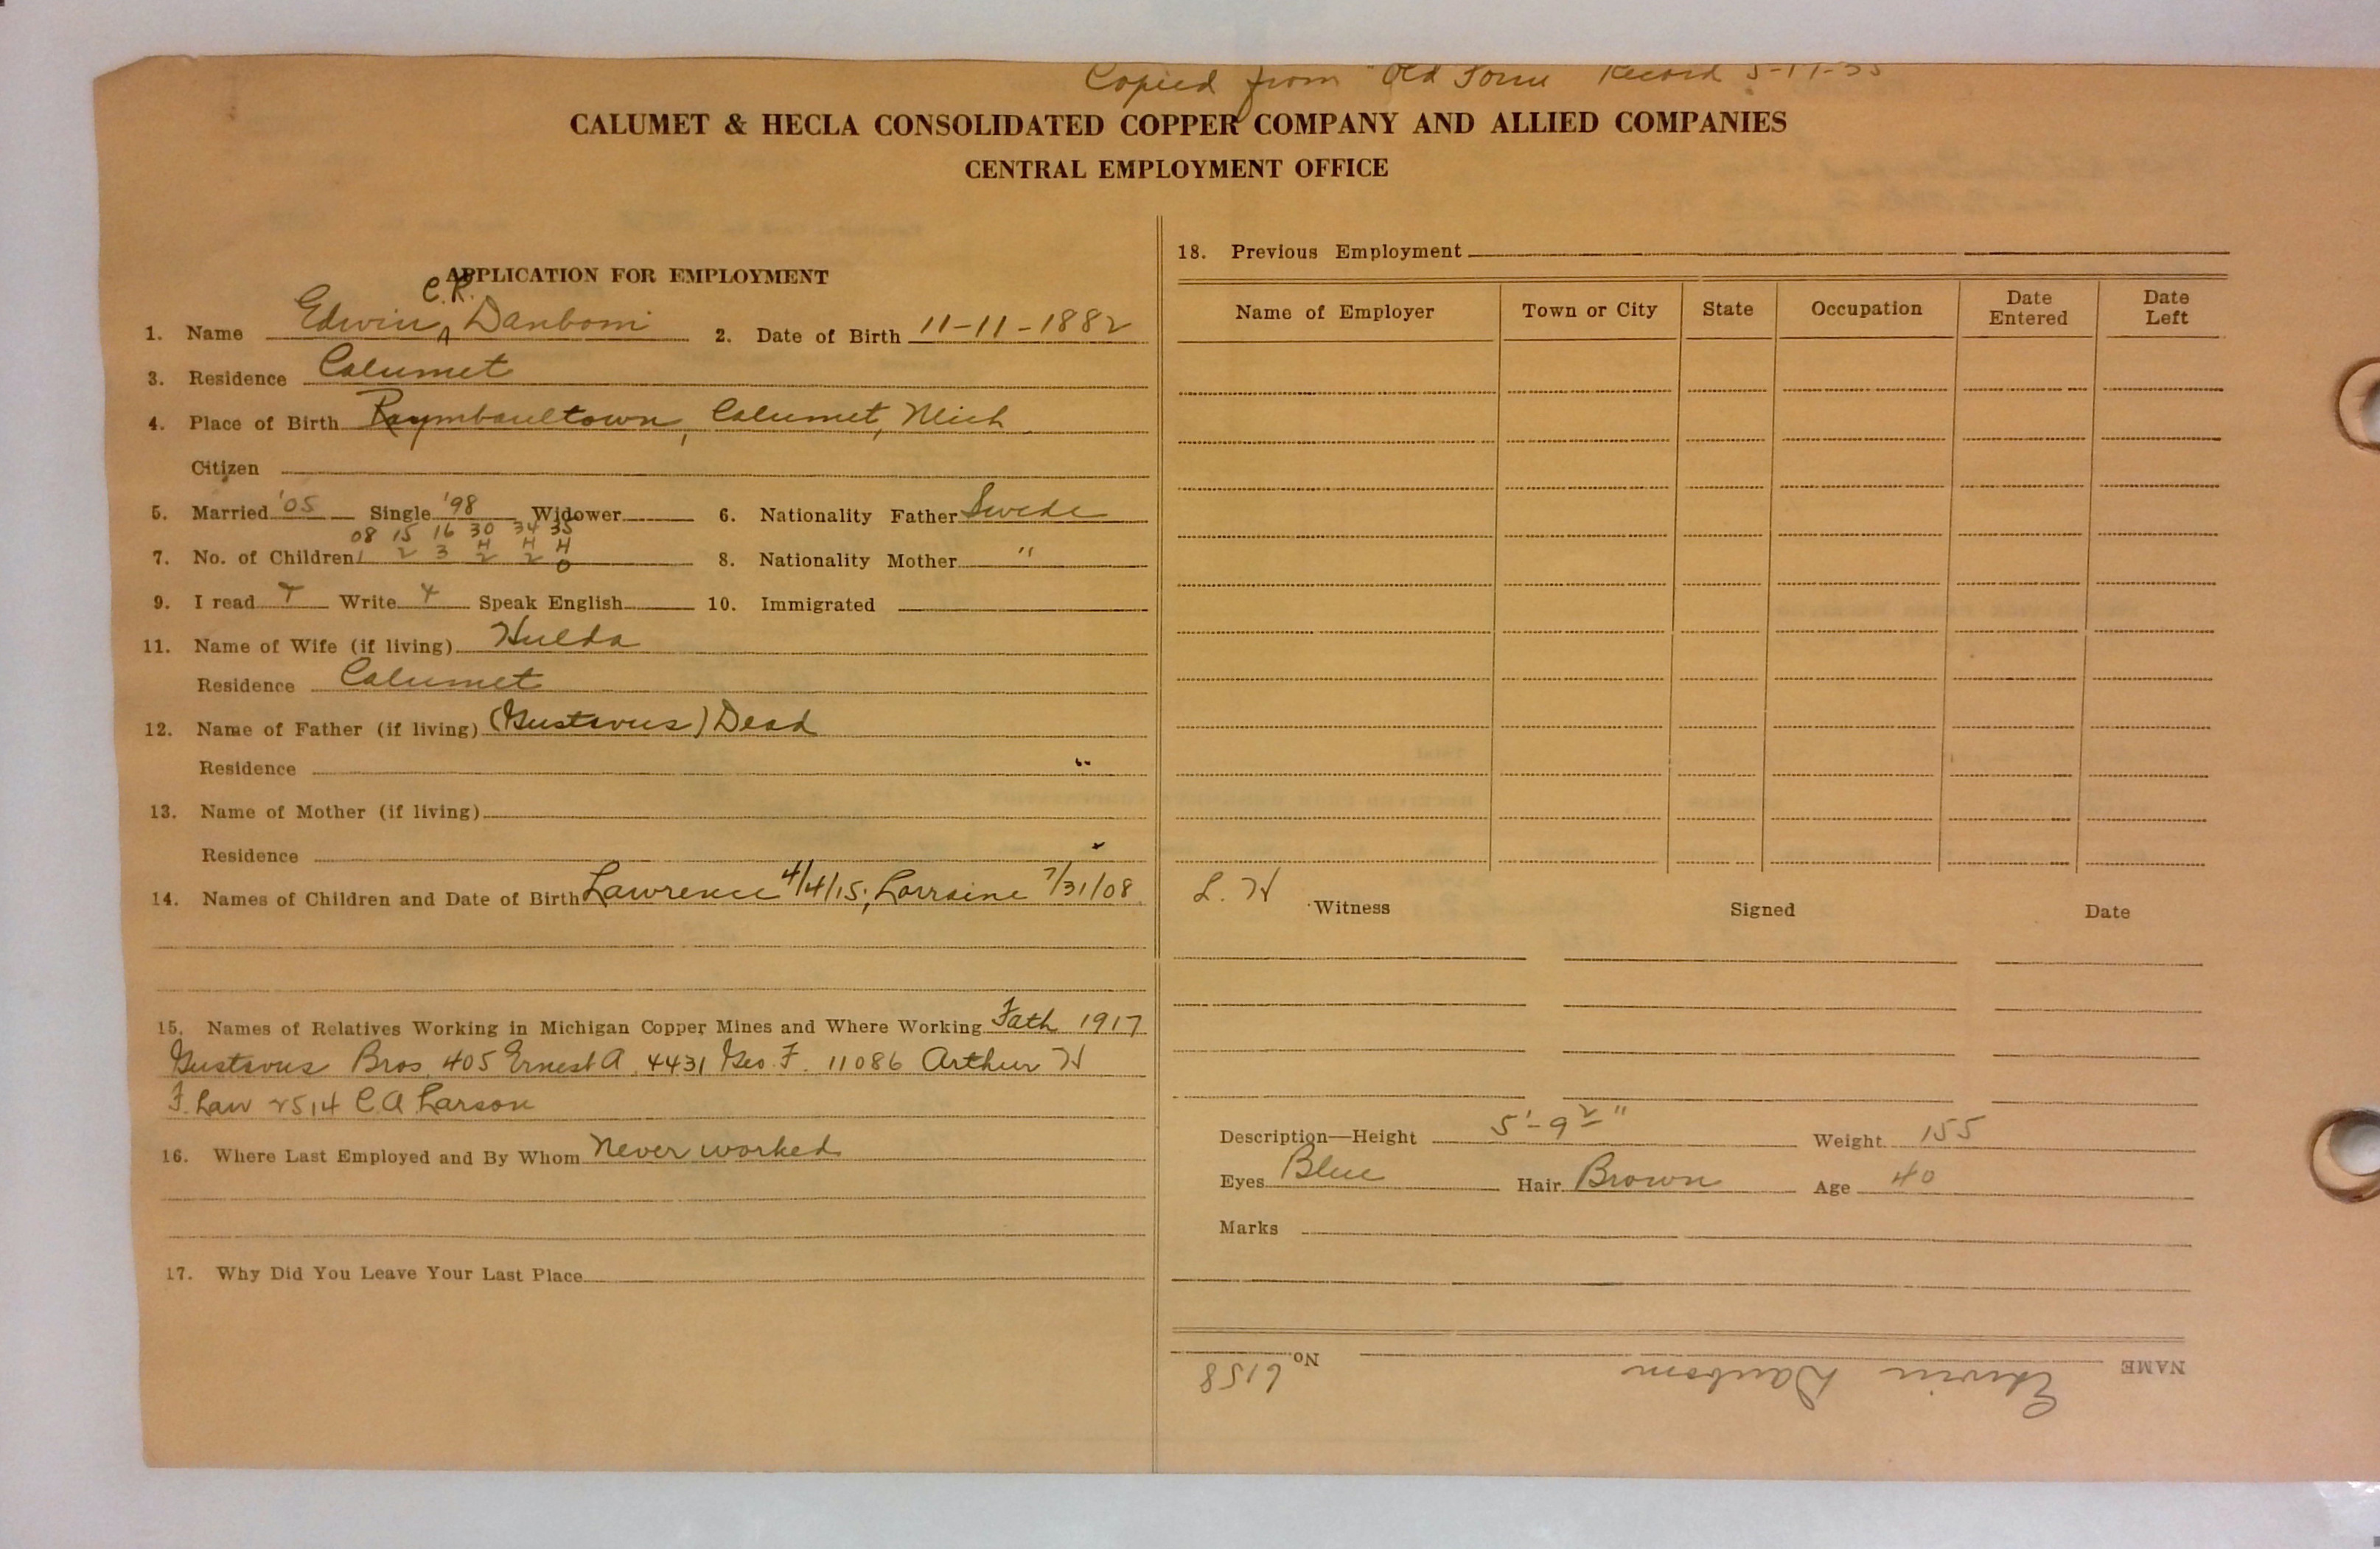 Copied from "Old Form Record
CALUMET & HECLA CONSOLIDATED COPPER COMPANY AND ALLIED COMPANIES
CENTRAL EMPLOYMENT OFFICE
APPLICATION FOR EMPLOYMENT
C.R.
1. Name Edwin ^ Danbom 2. Date of Birth 11-11-1882
3. Residence Calumet
4. Place of Birth Raymbaultown, Calumet, Mich
Citizen
5. Married '05 Single '98 Widower 6. Nationality Father Swede
08 15 16 30 34 35
H H H
7. No. of Children 1 2 3 2 2 0 8. Nationality Mother "
9. I read Write Speak English 10. Immigrated
11. Name of Wife (if living) Hulda
Residence Calumet
12. Name of Father (if living) (Gustavus) Dead
Residence "
13. Name of Mother (if living)
Residence
14. Names of Children and Date of Birth Lawrence 4/4/15; Lorraine 7/31/08
15. Names of Relatives Working in Michigan Copper Mines and Where Working Fath 1917
Gustavus Bros. 405 Ernest A. 4431 Geo. F. 11086 Arthur H
F. Law 2514 C.A Larson
16. Where Last Employed and By Whom Never worked
17. Why Did You Leave Your Last Place
18. Previous Employment
Name of Employer Town or City State Occupation Date Entered Date Left
L. H
Witness Signed Date
Description—Height 5'-9 2" Weight 155
Eyes Blue Hair Brown Age 40
Marks
NAME Edwin Danbom No. 6158